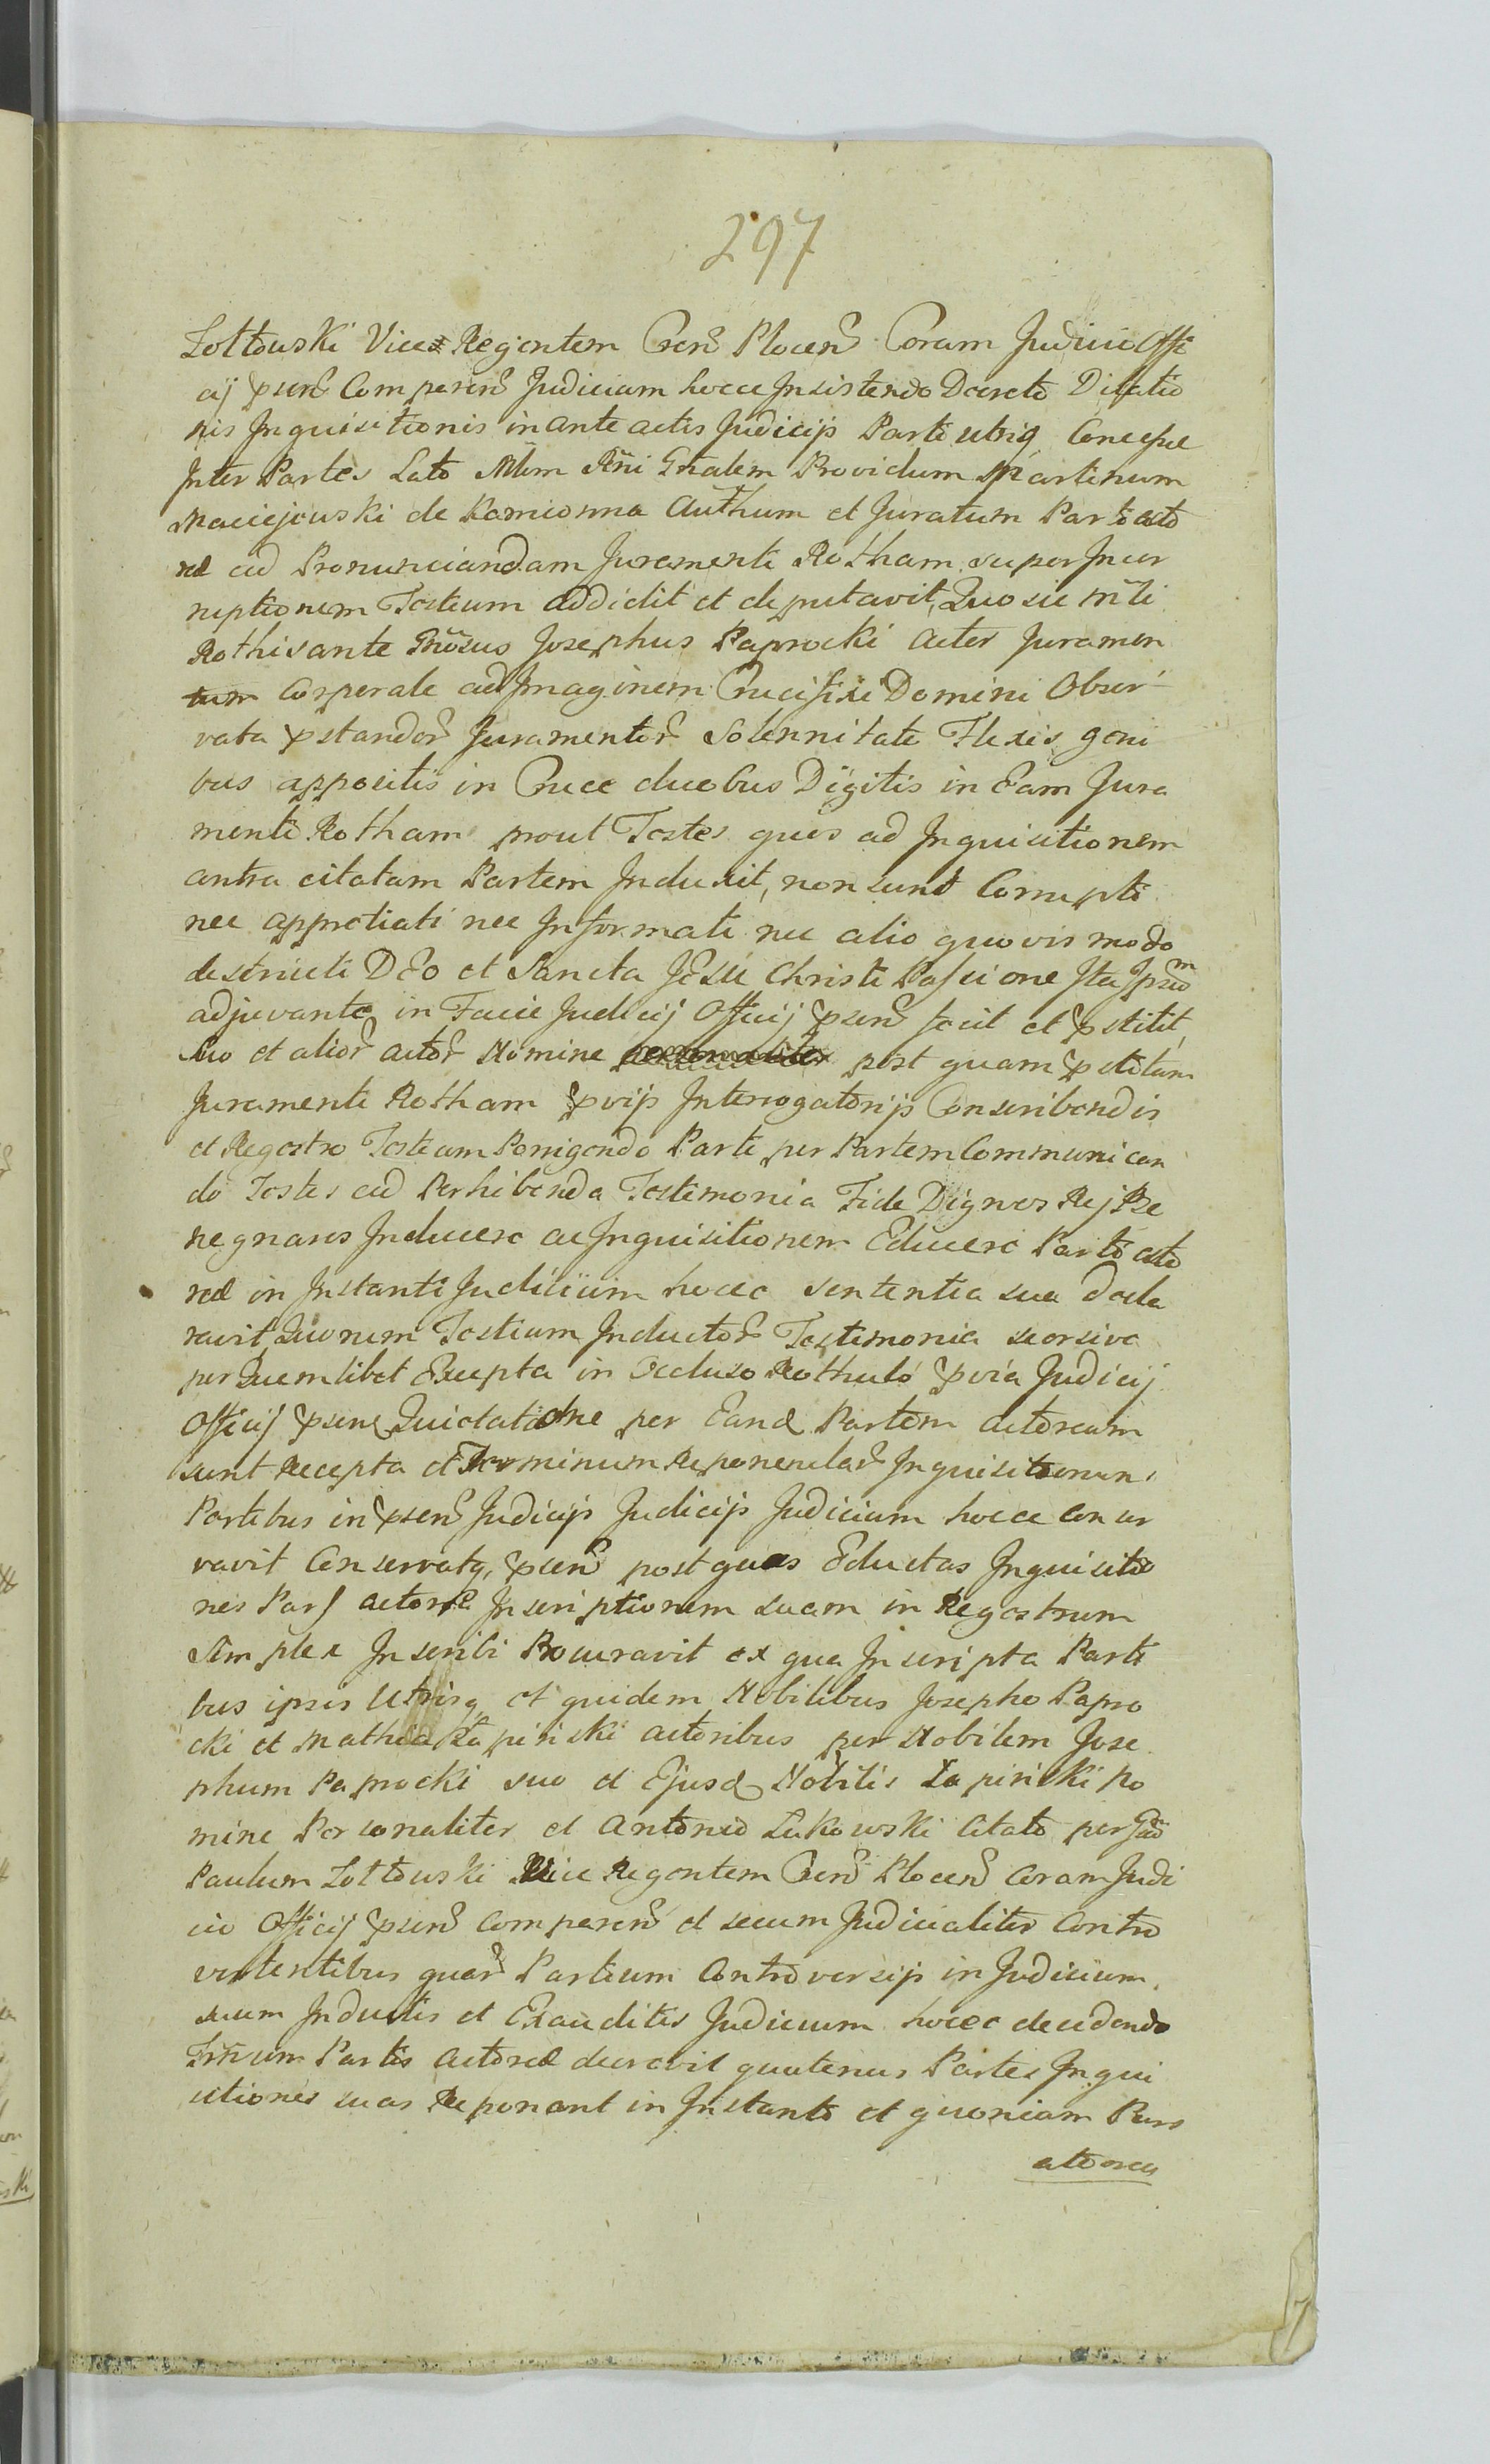 297
Zołtowski Vices Regentem Cren Plocen Coram Judicio Offi
cij psen Comparen Judicium hocce Insistendo Decreto Dilatio
nis Inquisitionis in ante actis Judicijs Parti utriq Concessae
Inter Partes Lato Mlm Rni Gnalem Providum Martinum
Maciejowski de Kamionna Authum et Juratum Parti acto
reæ ad Pronunciandam Juramenti Rotham super Incor
ruptionem Testium addidit et deputavit, Quo sic mti
Rothisante Gnosus Josephus Paprocki actor Juramen
tum Corporale ad Imaginem Crucifixi Domini Obser
vata pstandor Juramentor Solennitate Flexis geni
bus appositis in Cruce duobus Digitis in Eam Jura
menti Rotham prout Testes quos ad Inquisitionem
contra citatam Partem Induxit, non sunt Corrupti
nec appretiati nec Informati nec alio quovis modo
destructi Deo et Sancta Jesu Christi Passione Ita Ipsum
adjuvante in Facie Judicij Officij psen fecit et pstitit,
suo et alior actor Nomine post quam pstitam
Juramenti Rotham pvijs Interrogatorijs Conscribendis
et Regestro Testium Porrigendo Parti per Partem Communican
do Testes ad Perhibenda Testimonia Fide Dignos Rej Bæ
ne gnaros Inducere ac Inquisitionem Educere Parti acto
reæ in Instanti Judicium hocce sententia sua decla
ravit, Quorum Testium Inductor Testimonia seorsive
per Quemlibet Excepta in Occluso Rothulo pvia Judicij
Officij psen Quietatione per Eand Partem actoream
sunt Recepta et Terminum Reponendar Inquisitionum
Partibus in psen Judicijs Judicijs Judicium hocce conser
vavit Conservatq, psen post quas Eductas Inquisitio
nes Pars actorea Inscriptionem suam in Regestrum
Simplex Inscribi Procuravit ex qua Inscripta Parti
bus ipsis Utrisq et quidem Nobilibus Josepho Papro
cki et Mathia Łapinski actoribus per Nobilem Jose
phum Paprocki suo et Ejusd Nobilis Łapinski no
mine Personaliter et Antonio Lukowski Citato per Gnd
Paulum Zołtowski Vice Regentem Cren Plocen Coram Judi
cio Officij psen Comparen et secum Judicialiter Contro
vertentibus quar Partium Controversijs in Judicium
suum Inductis et Exauditis Judicium hocce decidendo
Trnum Partis actoreæ decrevit quatenus Partes Inqui
sitiones suas Reponant in Instanti et quoniam Pars
actorea